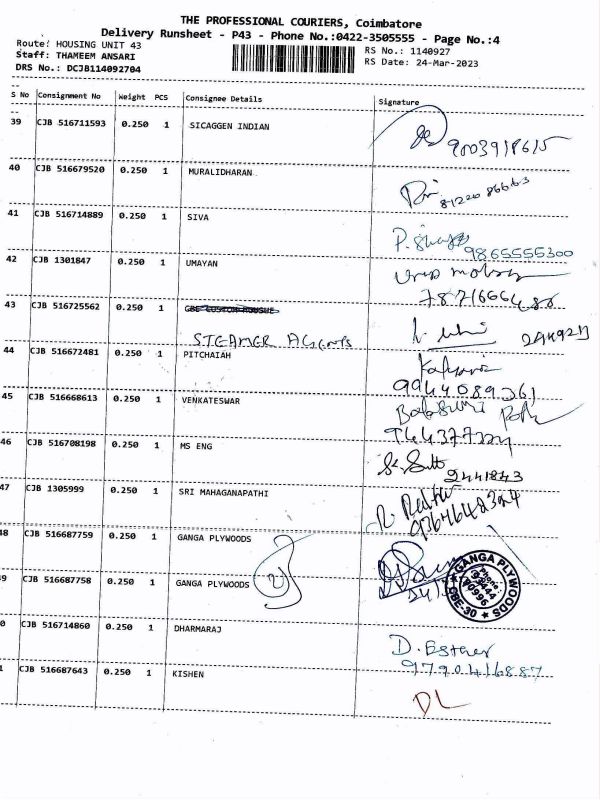 THE PROFESSIONAL COURIERS, Coimbatore
Delivery Runsheet - P43 - Phone No.:0422-3505555 - Page No.:4
Route: HOUSING UNIT 43
RS No.: 1140927
Staff: THAMEEM ANSARI
RS Date: 24-Mar-2023
DRS No.: DCJB114092704
S No Consignment No Weight PCS Consignee Details Signature
39 CJB 516711593 0.250 1 SICAGGEN INDIAN
9003918615
40 CJB 516679520 0.250 1 MURALIDHARAN
41 CJB 516714889 0.250 1 SIVA
9865555300
42 CJB 1301847 0.250 1 UMAYAN
43 CJB 516725562 0.250 1
STEAMER AGENTS
44 CJB 516672481 0.250 1 PITCHAIAH
9944089261
45 CJB 516668613 0.250 1 VENKATESWAR
46 CJB 516708198 0.250 1 MS ENG
2441843
47 CJB 1305999 0.250 1 SRI MAHAGANAPATHI
48 CJB 516687759 0.250 1 GANGA PLYWOODS
GANGA PLYWOODS
Phone:
CBE-30
9 CJB 516687758 0.250 1 GANGA PLYWOODS
0 CJB 516714860 0.250 1 DHARMARAJ
D. Esther
9790416887
CJB 516687643 0.250 1 KISHEN
DL